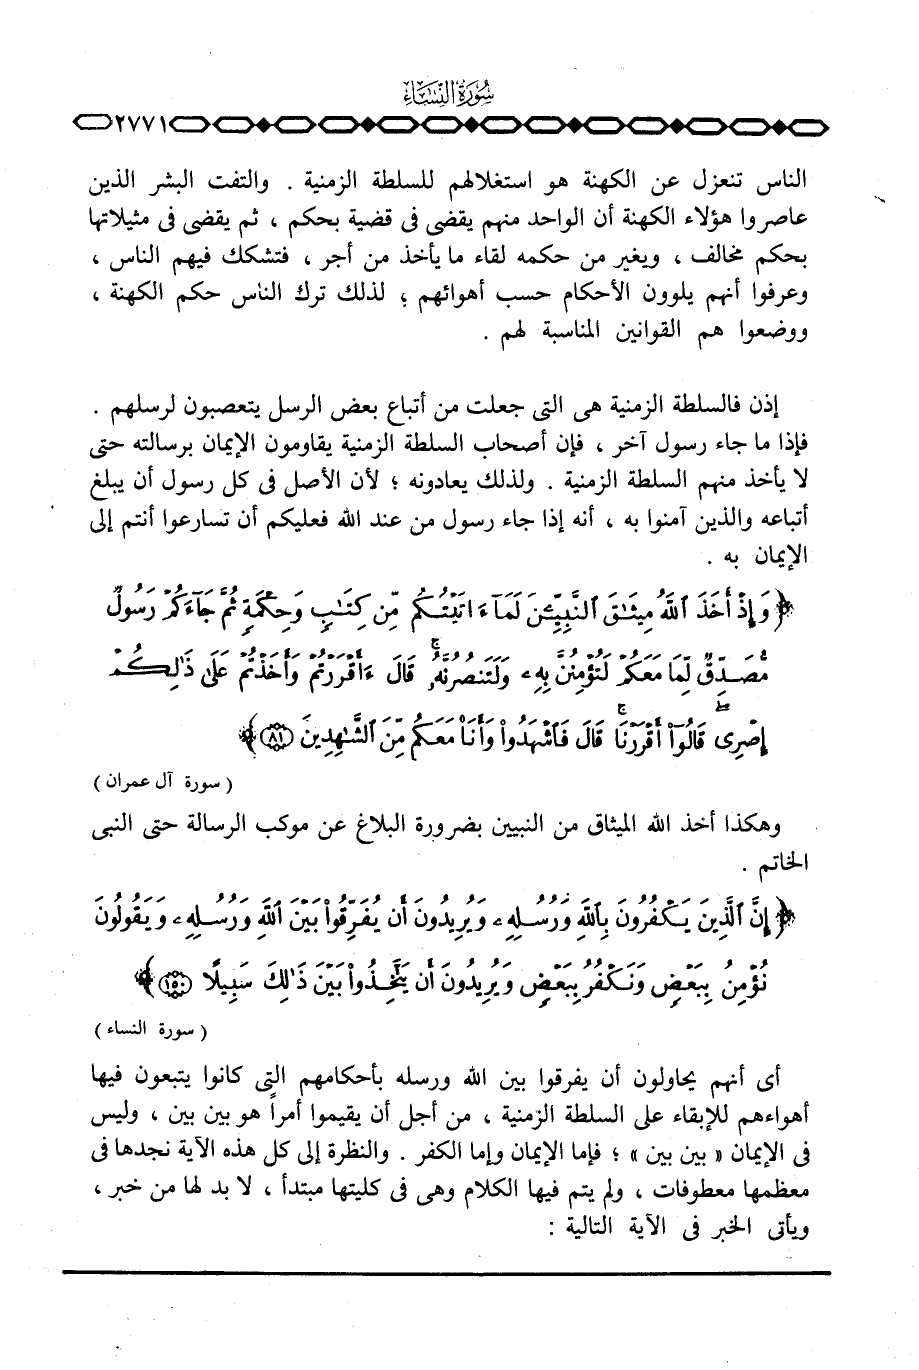 سُورَةُ النِّسَاء
٢٧٧١
الناس تنعزل عن الكهنة هو استغلالهم للسلطة الزمنية . والتفت البشر الذين
عاصروا هؤلاء الكهنة أن الواحد منهم يقضى فى قضية بحكم ، ثم يقضى فى مثيلاتها
بحكم مخالف ، ويغير من حكمه لقاء ما يأخذ من أجر ، فتشكك فيهم الناس ،
وعرفوا أنهم يلوون الأحكام حسب أهوائهم ؛ لذلك ترك الناس حكم الكهنة ،
ووضعوا هم القوانين المناسبة لهم .
إذن فالسلطة الزمنية هى التى جعلت من أتباع بعض الرسل يتعصبون لرسلهم .
فإذا ما جاء رسول آخر ، فإن أصحاب السلطة الزمنية يقاومون الإيمان برسالته حتى
لا يأخذ منهم السلطة الزمنية . ولذلك يعادونه ؛ لأن الأصل فى كل رسول أن يبلغ
أتباعه والذين آمنوا به ، أنه إذا جاء رسول من عند الله فعليكم أن تسارعوا أنتم إلى
الإيمان به .
﴿ وَإِذْ أَخَذَ ٱللَّهُ مِيثَٰقَ ٱلنَّبِيِّـۧنَ لَمَآ ءَاتَيْتُكُم مِّن كِتَٰبٍ وَحِكْمَةٍ ثُمَّ جَآءَكُمْ رَسُولٌ
مُّصَدِّقٌ لِّمَا مَعَكُمْ لَتُؤْمِنُنَّ بِهِۦ وَلَتَنصُرُنَّهُۥ ۚ قَالَ ءَأَقْرَرْتُمْ وَأَخَذْتُمْ عَلَىٰ ذَٰلِكُمْ
إِصْرِى ۖ قَالُوٓا۟ أَقْرَرْنَا ۚ قَالَ فَٱشْهَدُوا۟ وَأَنَا۠ مَعَكُم مِّنَ ٱلشَّٰهِدِينَ ٨١ ﴾
( سورة آل عمران )
وهكذا أخذ الله الميثاق من النبيين بضرورة البلاغ عن موكب الرسالة حتى النبى
الخاتم .
﴿ إِنَّ ٱلَّذِينَ يَكْفُرُونَ بِٱللَّهِ وَرُسُلِهِۦ وَيُرِيدُونَ أَن يُفَرِّقُوا۟ بَيْنَ ٱللَّهِ وَرُسُلِهِۦ وَيَقُولُونَ
نُؤْمِنُ بِبَعْضٍ وَنَكْفُرُ بِبَعْضٍ وَيُرِيدُونَ أَن يَتَّخِذُوا۟ بَيْنَ ذَٰلِكَ سَبِيلًا ١٥٠ ﴾
( سورة النساء )
أى أنهم يحاولون أن يفرقوا بين الله ورسله بأحكامهم التى كانوا يتبعون فيها
أهواءهم للإبقاء على السلطة الزمنية ، من أجل أن يقيموا أمراً هو بين بين ، وليس
فى الإيمان « بين بين » ؛ فإما الإيمان وإما الكفر . والنظرة إلى كل هذه الآية نجدها فى
معظمها معطوفات ، ولم يتم فيها الكلام وهى فى كليتها مبتدأ ، لا بد لها من خبر ،
ويأتى الخبر فى الآية التالية :